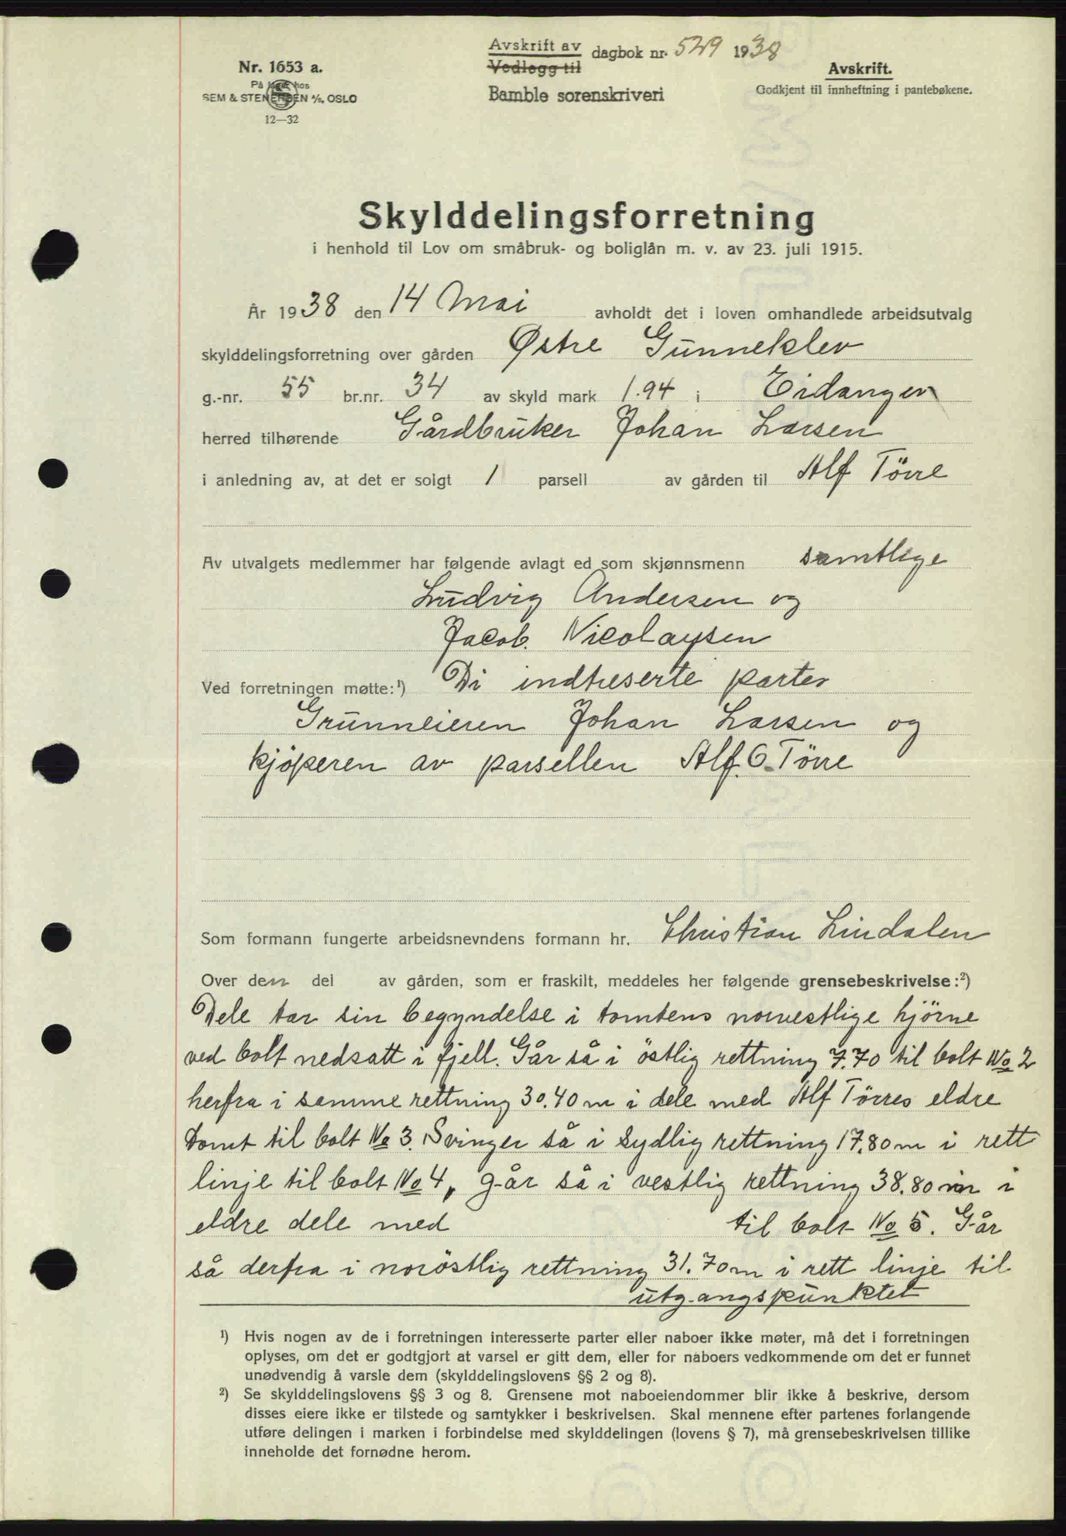 Nr. 1653 a.
På lager hos
SEM & STENERSEN A/S, OSLO
12—32
Avskrift av
Vedlegg til
dagbok nr. 529 1938
Bamble sorenskriveri
Avskrift.
Godkjent til innheftning i pantebøkene.
Skylddelingsforretning
i henhold til Lov om småbruk- og boliglån m. v. av 23. juli 1915.
År 1938 den 14 Mai avholdt det i loven omhandlede arbeidsutvalg
skylddelingsforretning over gården Østre Gunneklev
g.-nr. 55 br.nr. 34 av skyld mark 1.94 i Eidanger
herred tilhørende Gårdbruker Johan Larsen
i anledning av, at det er solgt 1 parsell av gården til Alf Törre
Av utvalgets medlemmer har følgende avlagt ed som skjønnsmenn samtlige
Ludvig Andersen og
Jacob. Nicolaysen
Ved forretningen møtte:¹) Di indtreserte parter
Grunneieren Johan Larsen og
kjöperen av parsellen Alf. O. Törre
Som formann fungerte arbeidsnevndens formann hr. Christian Lindalen
Over den del av gården, som er fraskilt, meddeles her følgende grensebeskrivelse:²)
Dele tar sin begyndelse i tomtens norvestlige hjörne
ved bolt nedsatt i fjell. Går så i östlig rettning 7.70 til bolt No 2
herfra i samme rettning 30.40 m i dele med Alf Törres eldre
tomt til bolt No 3. Svinger så i sydlig rettning 17.80 m i rett
linje til bolt No 4, går så i vestlig rettning 38.80 m i
eldre dele med til bolt No 5. Går
så derfra i noröstlig rettning 31.70 m i rett linje til
utgangspunktet
¹) Hvis nogen av de i forretningen interesserte parter eller naboer ikke møter, må det i forretningen
oplyses, om det er godtgjort at varsel er gitt dem, eller for naboers vedkommende om det er funnet
unødvendig å varsle dem (skylddelingslovens §§ 2 og 8).
²) Se skylddelingslovens §§ 3 og 8. Grensene mot naboeiendommer blir ikke å beskrive, dersom
disses eiere ikke er tilstede og samtykker i beskrivelsen. Skal mennene efter partenes forlangende
utføre delingen i marken i forbindelse med skylddelingen (lovens § 7), må grensebeskrivelsen tillike
inneholde det fornødne herom.